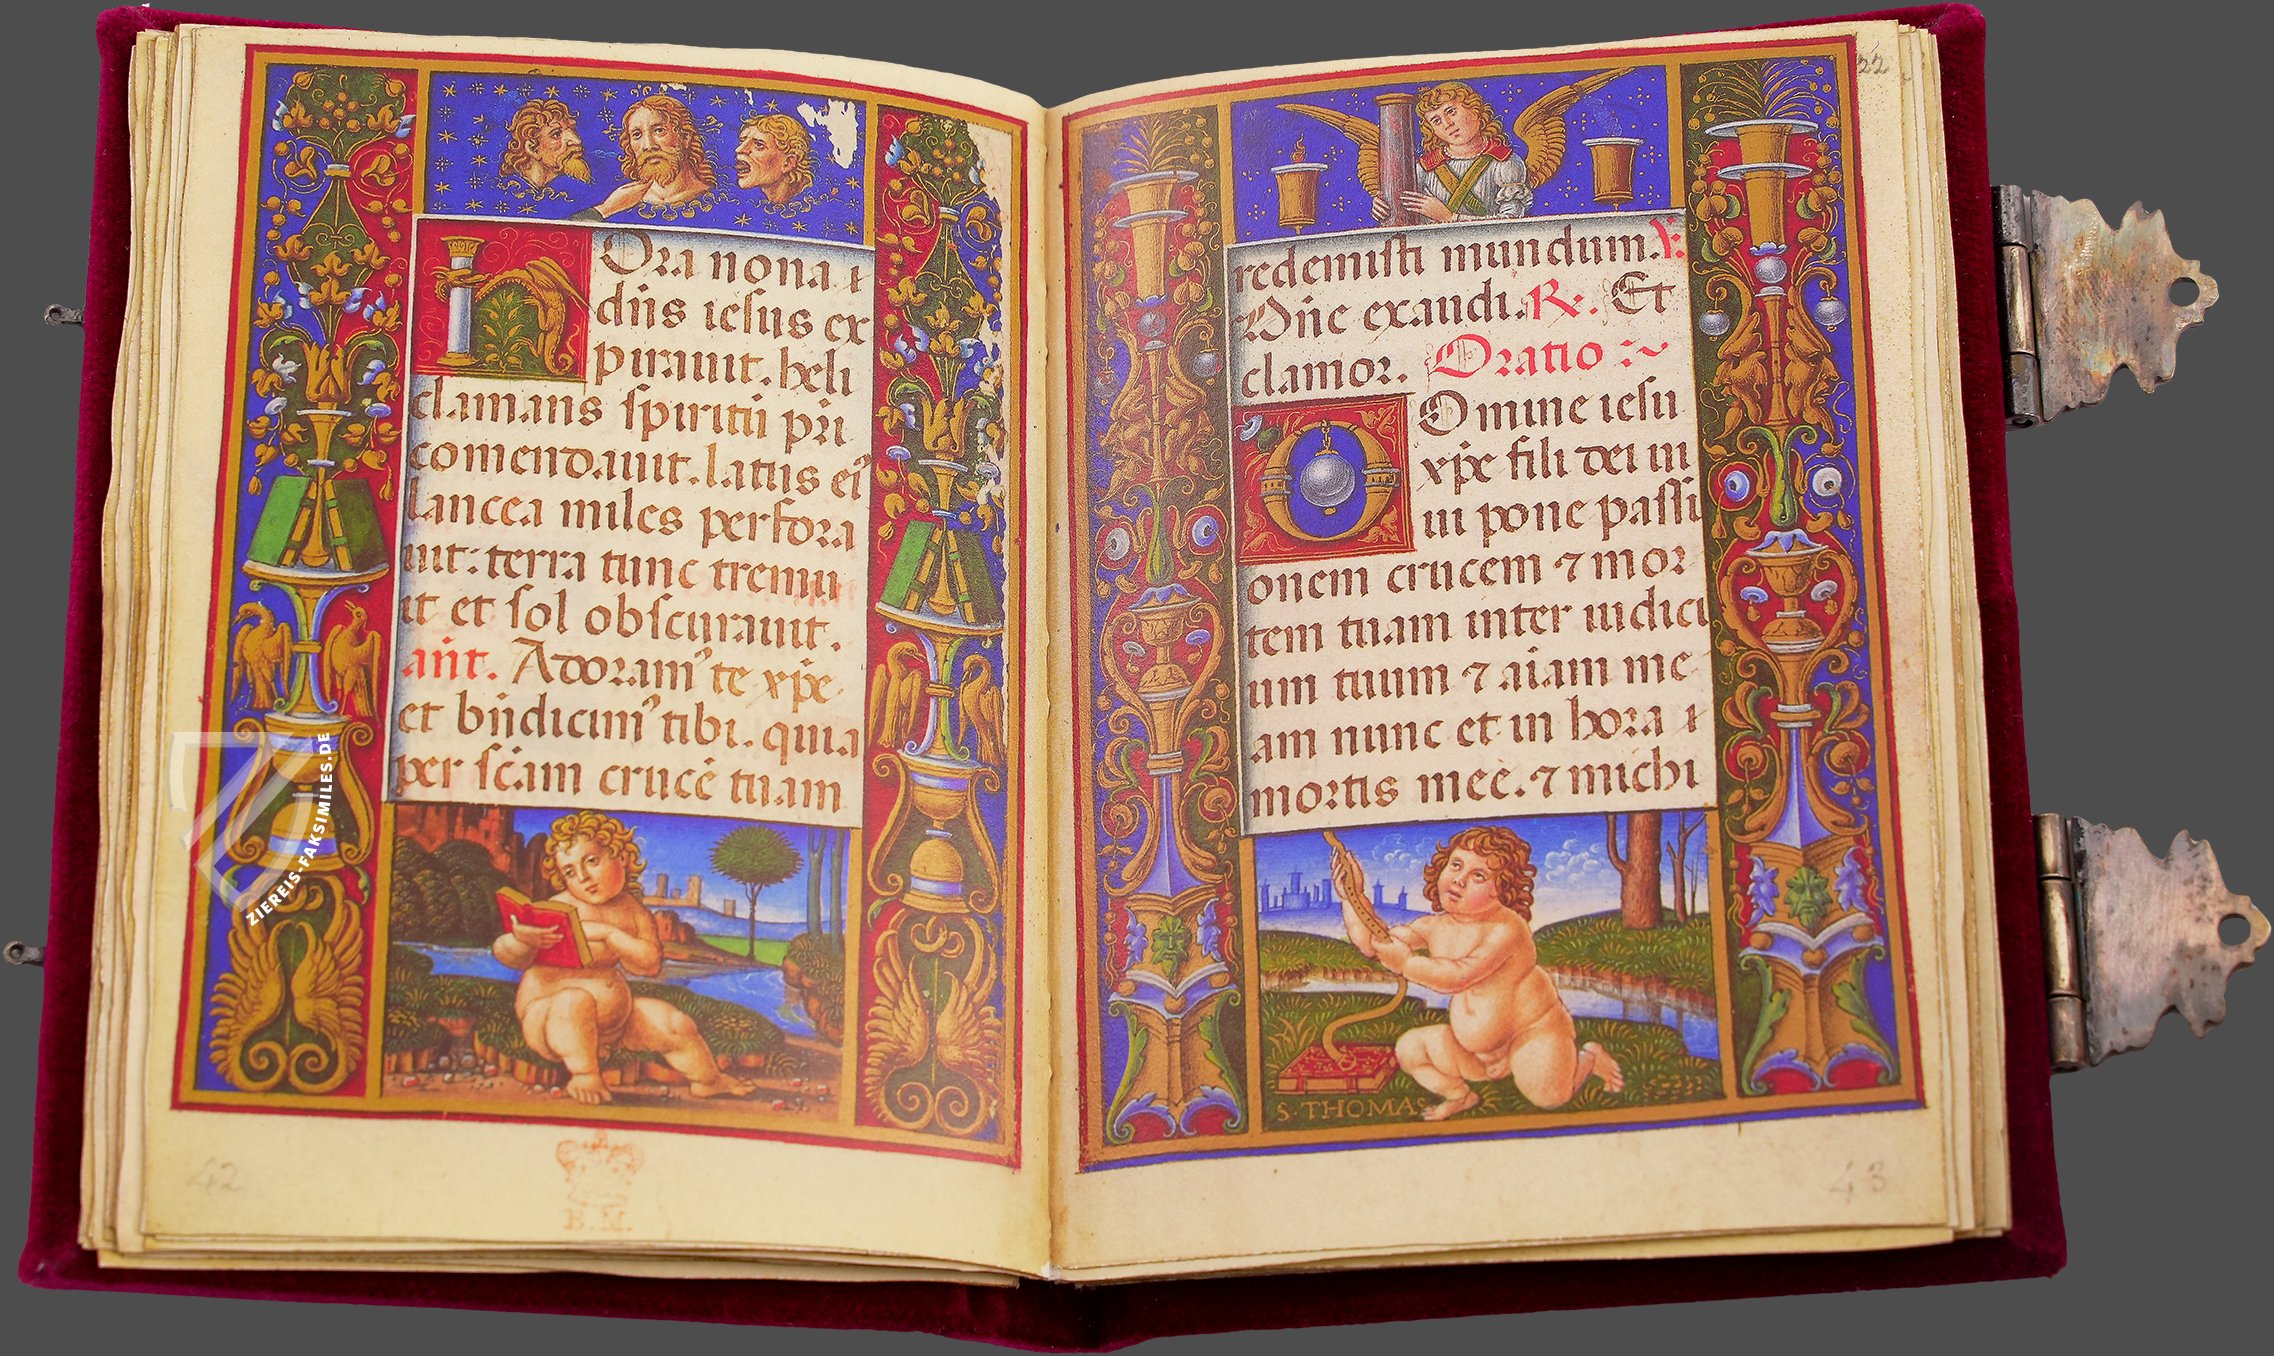 Hora nona
dn̄s iesus ex
pirauit. heli
clamans spiritū pr̄i
comendauit. latus ei᾽
lancea miles perfora
uit: terra tunc tremu
it et sol obscurauit.
an̄t. Adoram᾽ te xp̄e
et bn̄dicim᾽ tibi. quia
per sc̄am crucē tuam
42
B.M.
ZIEREIS-FAKSIMILES.DE
22
redemisti mundum. V̄.
Dn̄e exaudi. R̄. Et
clamor. Oratio
Domine iesu
xp̄e fili dei ui
ui pone passi
onem crucem ⁊ mor
tem tuam inter iudici
um tuum ⁊ aīam me
am nunc et in hora
mortis meę. ⁊ michi
S. THOMAS
43